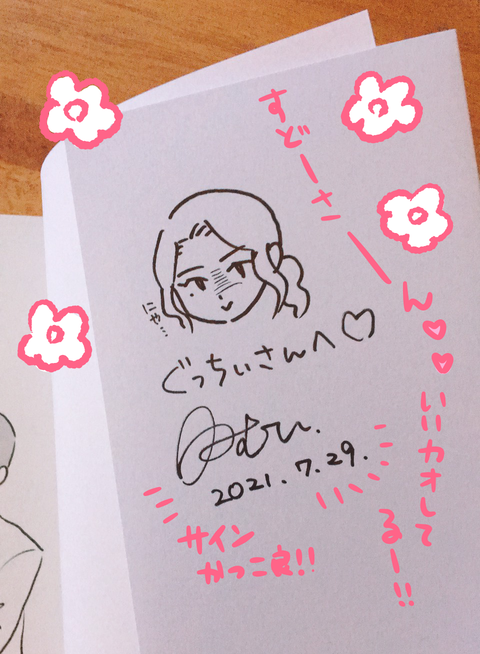 すどーさーん♡♡
いいカオして
るー!!
にゃ…
ぐっちぃさんへ♡
2021.7.29.
サイン
かっこ良!!